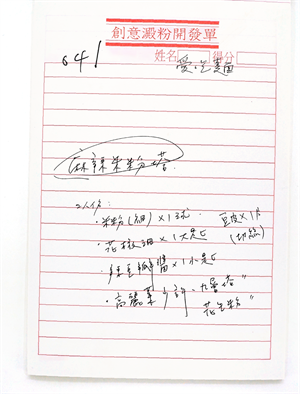 創意澱粉開發單
641
姓名 得分
愛吃麵
麻辣米粉
二人份：
·米粉(細)×1球 豆皮×1片
·花椒油×1大匙 (切絲)
·辣豆瓣醬×1小匙
·高麗菜少許·九層塔"
花生粉"